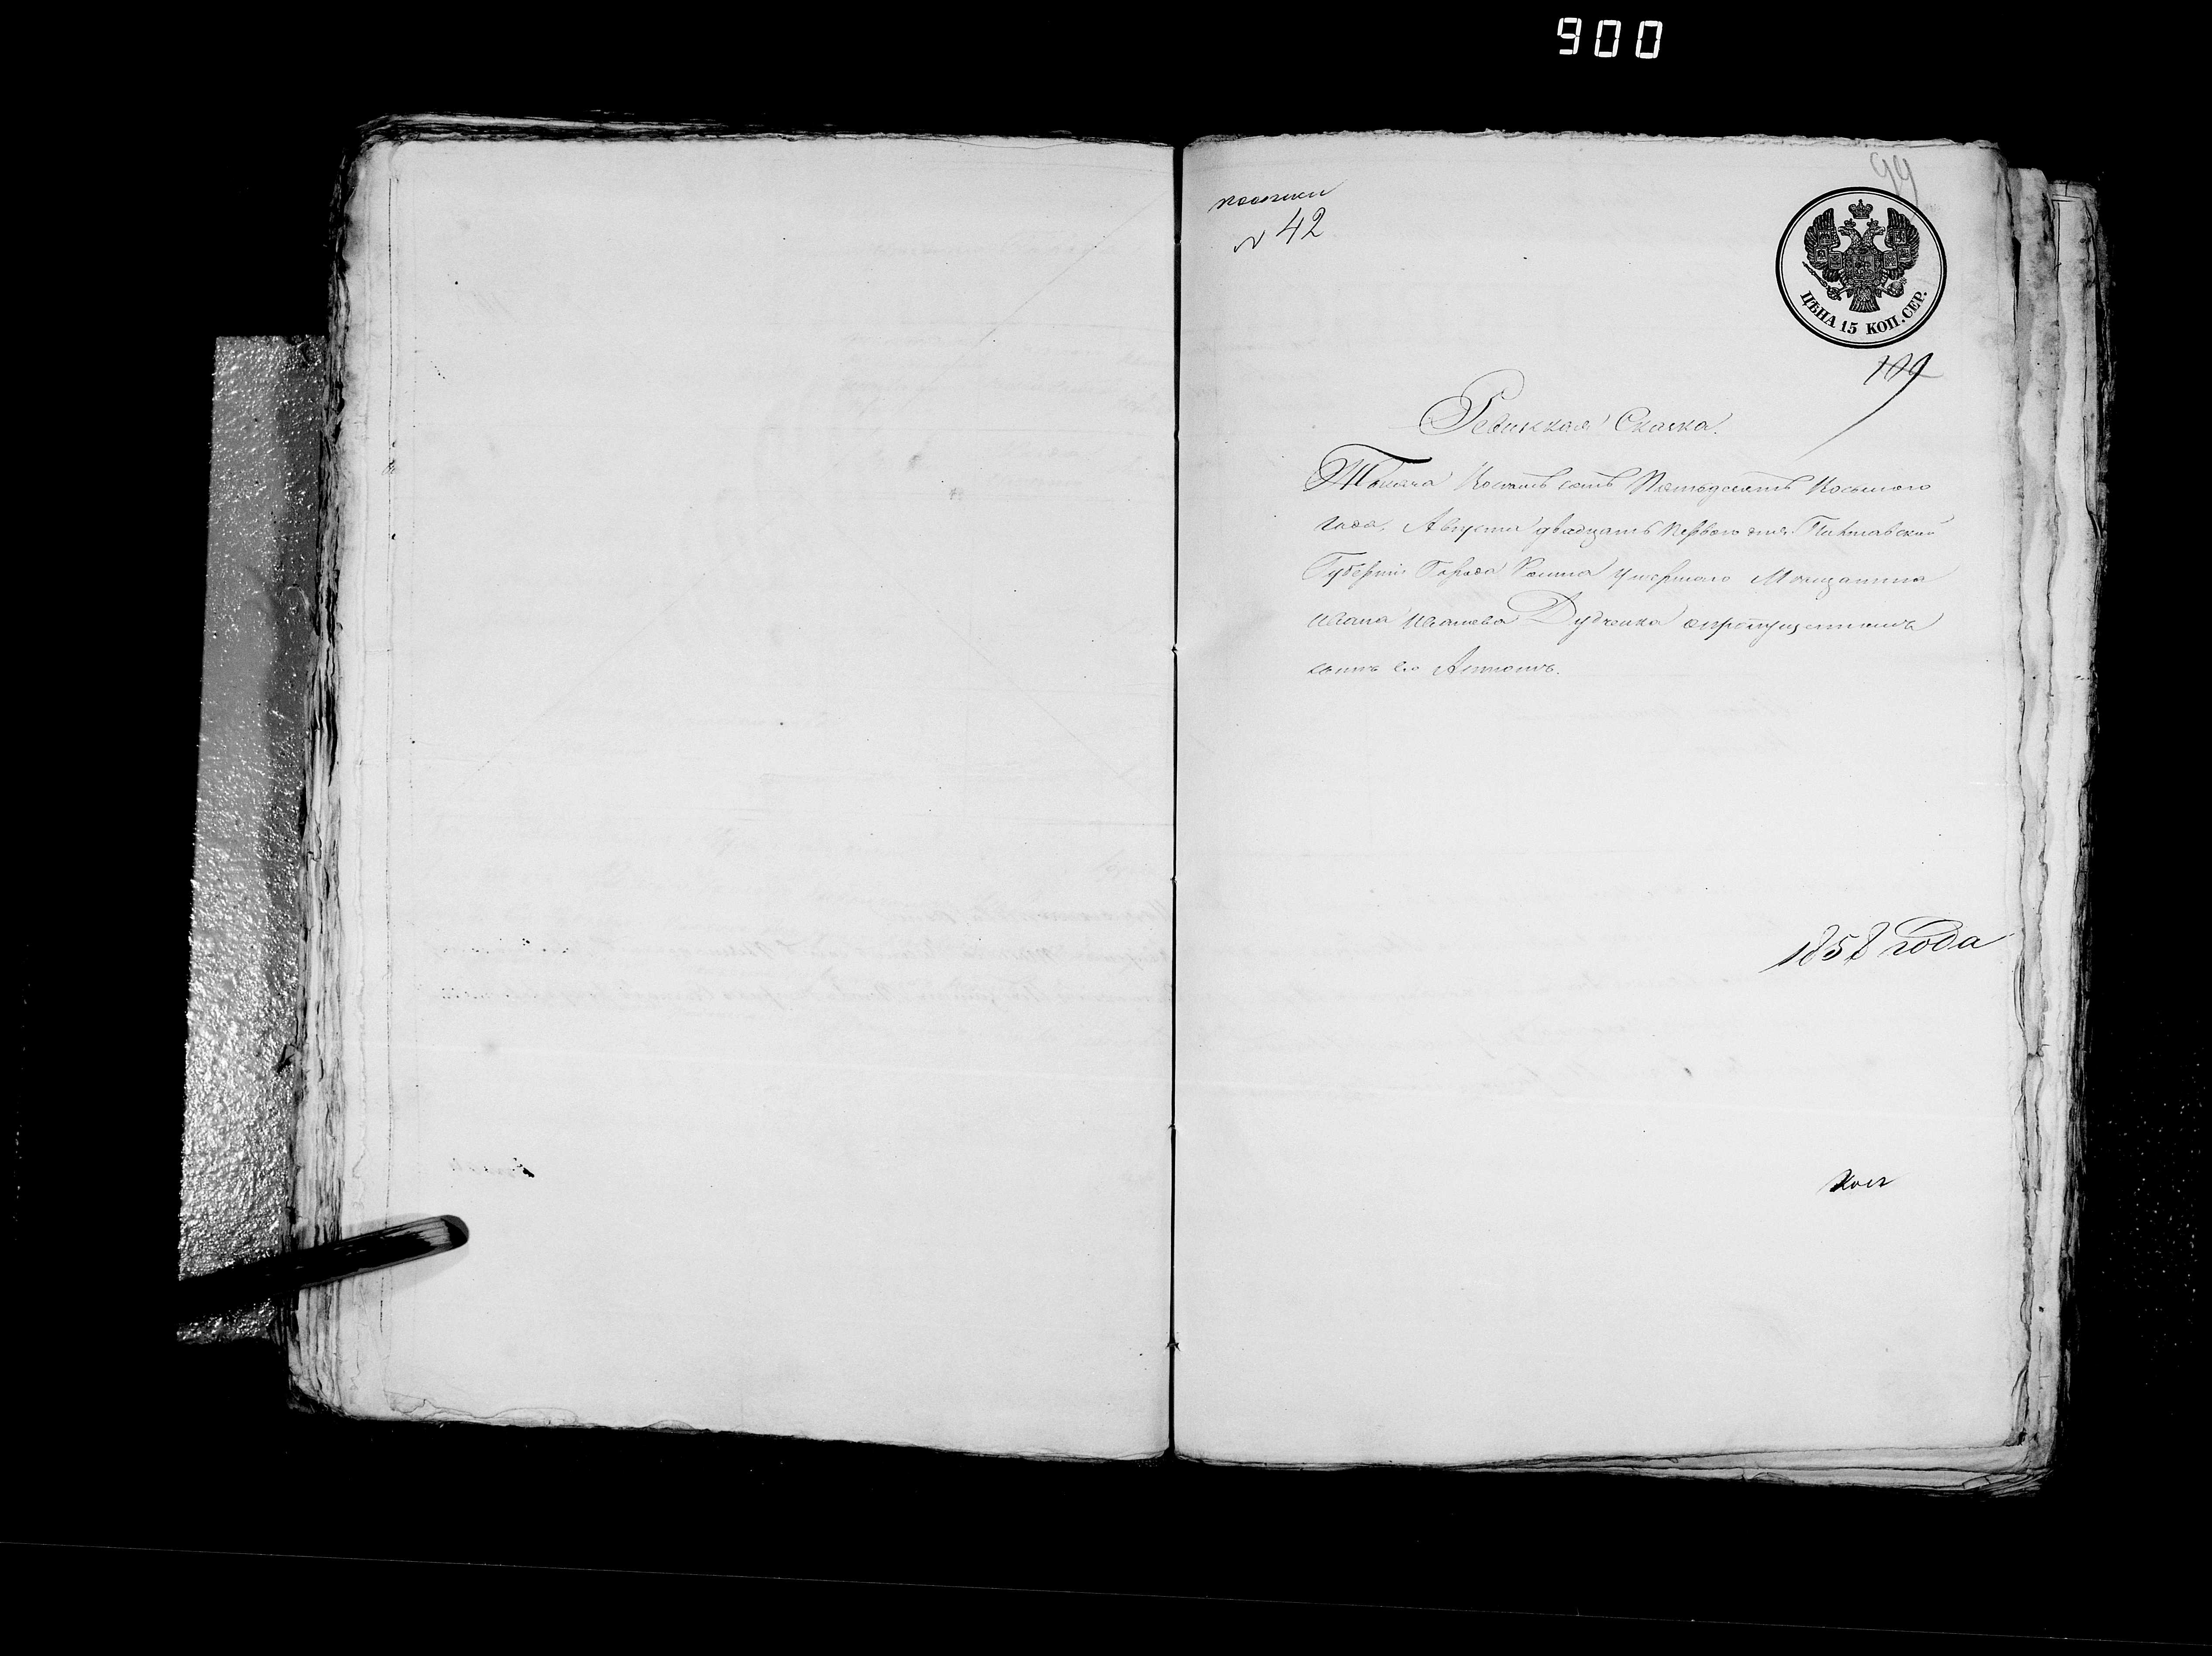 900
99
№ 42
ЦѢНА 15 КОП. СЕР.
109
Ревизкая Скаска.
Тысяча Восемь сотъ Пятьдесятъ Восьмого
года, Августа двадцать Первого дня Полтавской
Губерніи Города Ромна умершаго Мещанина
Ивана Иванова Дудченка
сынъ его Антонъ.
1858 года